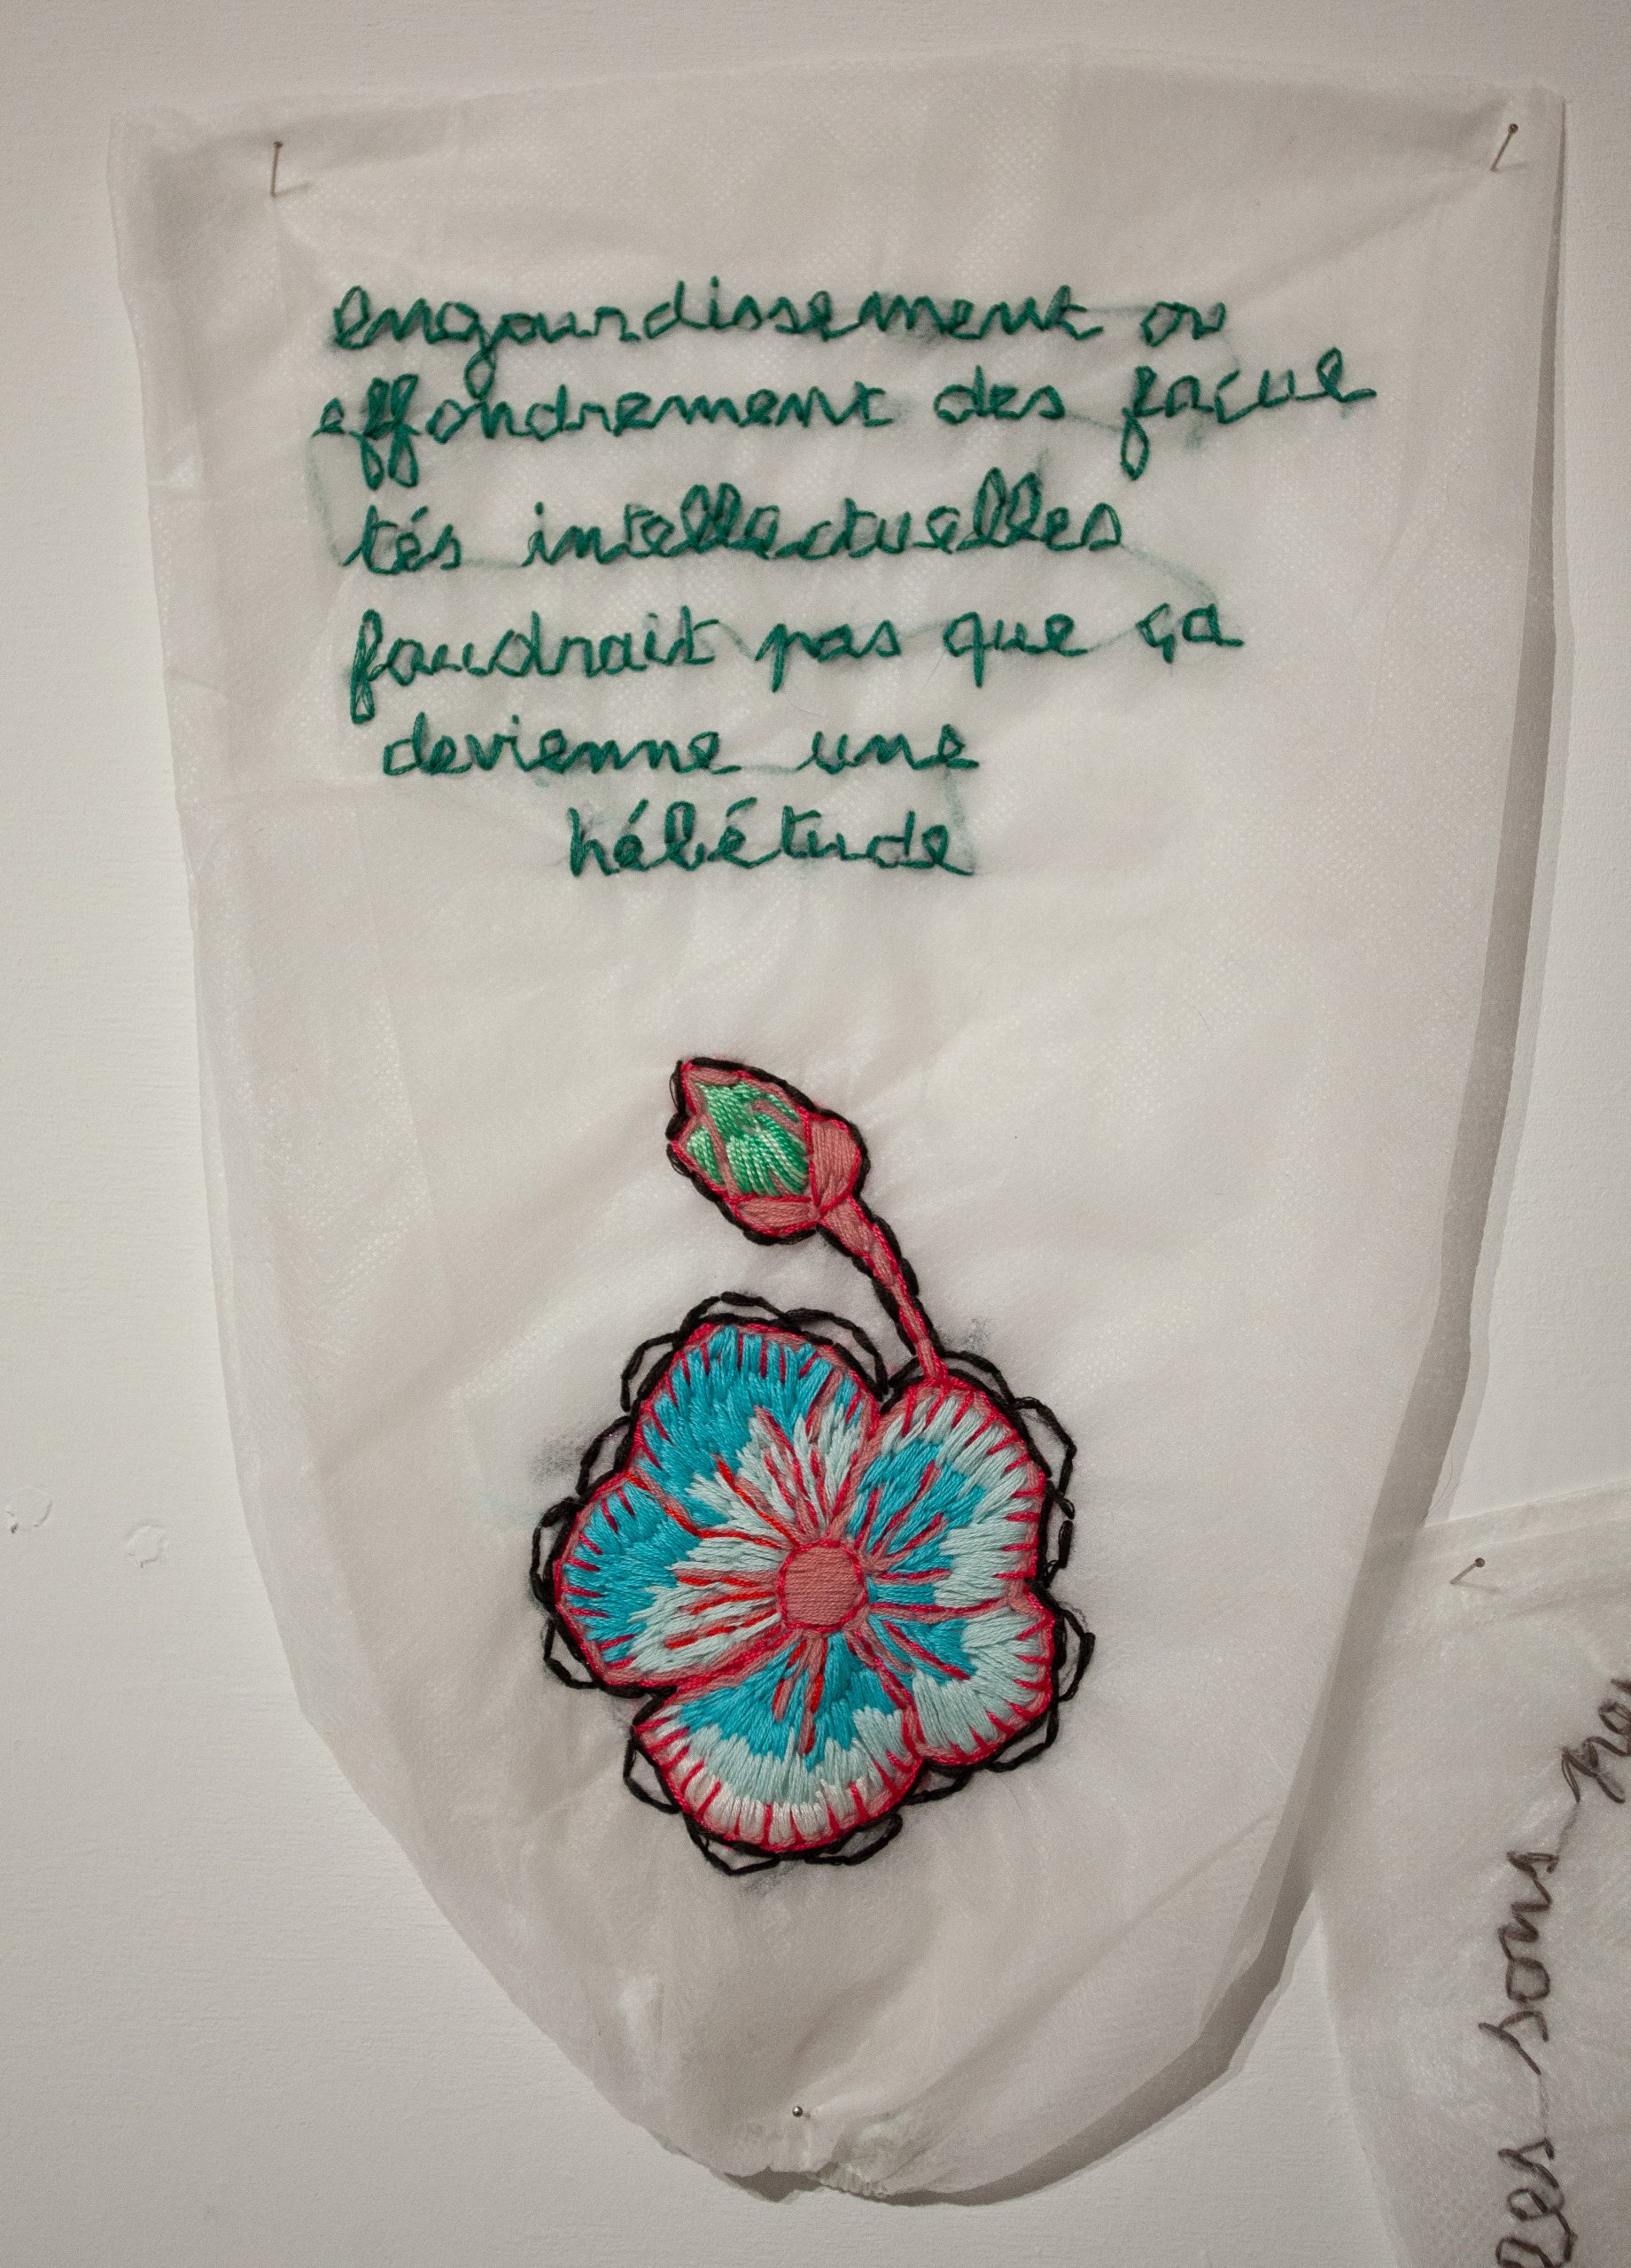 engourdissement ou
effondrement des facul
tés intellectuelles
faudrait pas que ça
devienne une
hébétude
sons